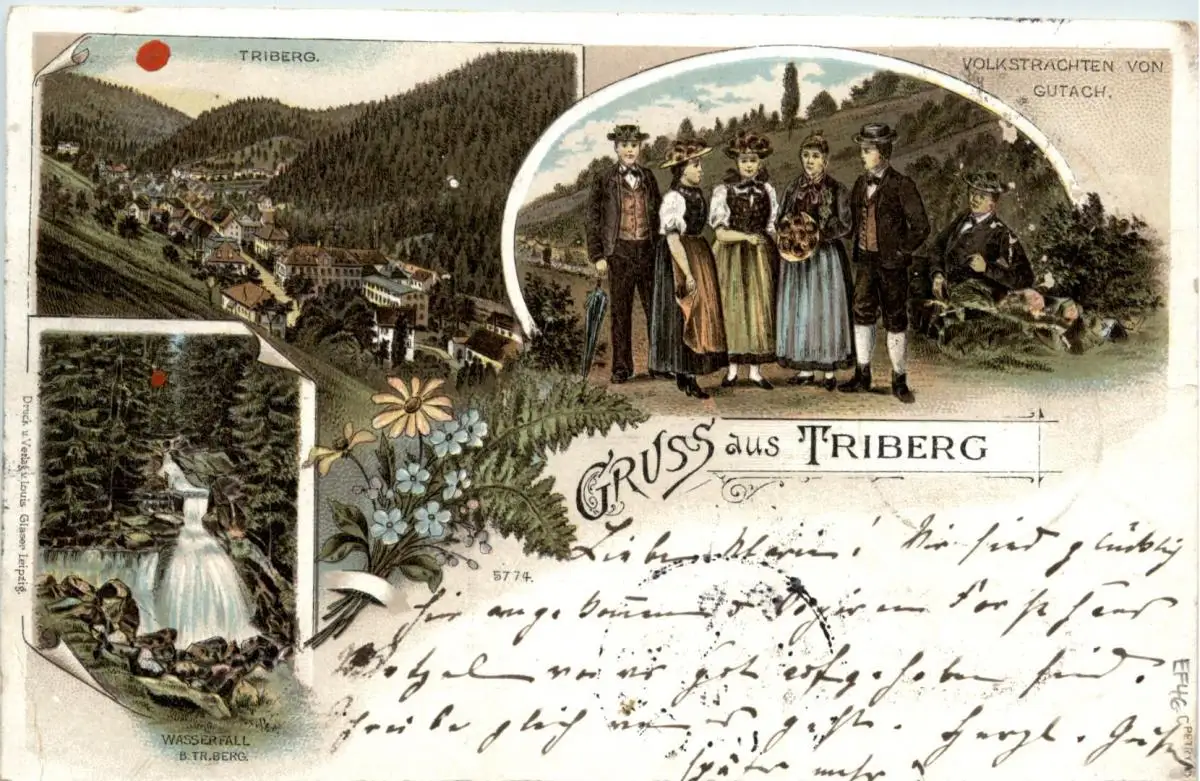 TRIBERG.
VOLKSTRACHTEN VON
GUTACH.
Druck u. Verlag v. Louis Glaser Leipzig.
GRUSS aus TRIBERG
5774.
WASSERFALL
B. TRIBERG.
Liebe Marie! Wir sind glücklich
hier angekommen &
wo wir gut aufgehoben sind.
Schreibe gleich wie es geht. Herzl. Grüße
später mehr
EF46